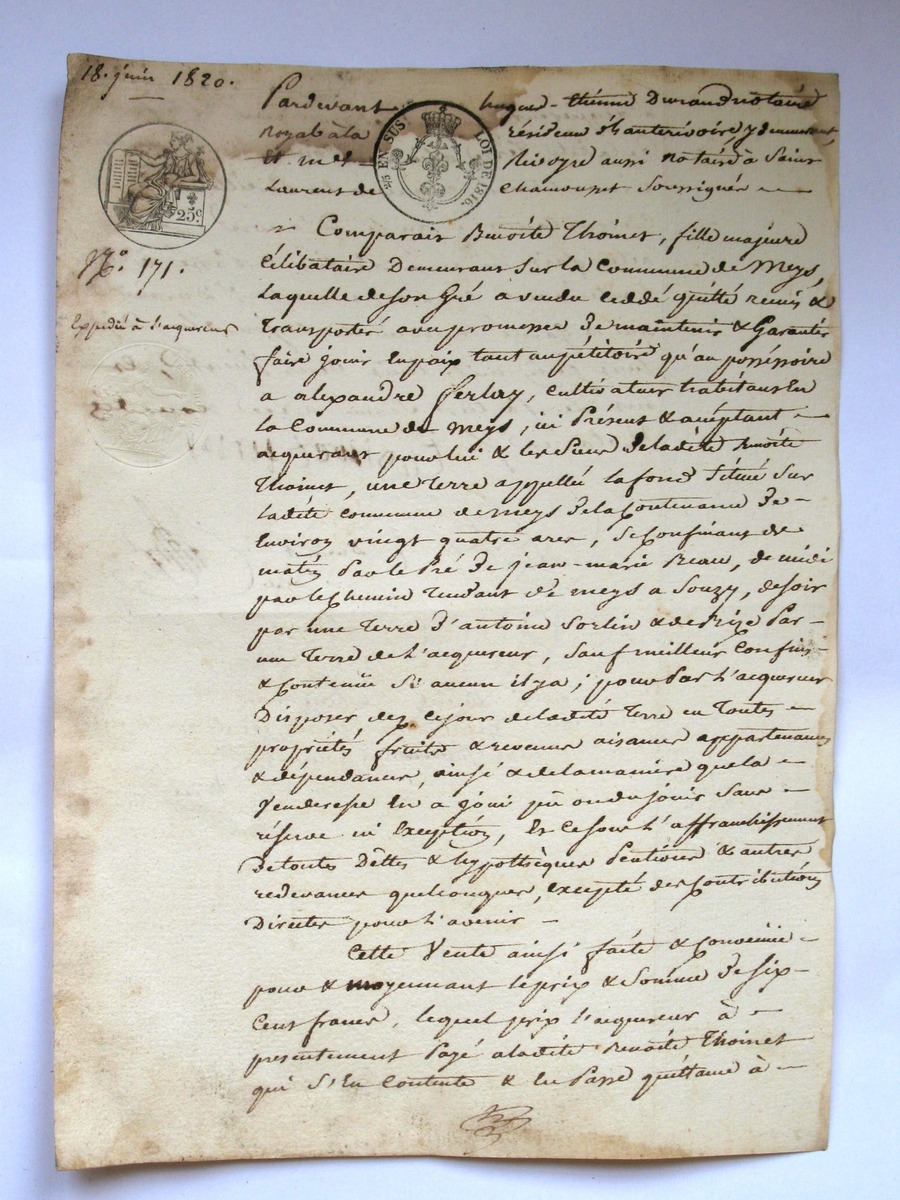 18. juin 1820.
Pardevant hugue-étienne Durand notaire
royal à la résidence d'hauterivoire, y demeurant,
et me Rivoyre aussi notaire à Saint
Laurent de Chamousset Soussignés —
25 EN SUS
LOI DE 1816.
25c.
No. 171.
Expédié à l'acquereur
Comparait Benoîte Thoinet, fille majeure
Célibataire Demeurant Sur la Commune de Meys,
Laquelle de Son Gré a vendu Ceddé quitté remis &
Transporté avec promesse De maintenir & Garantir
faire jouir En paix tant au pétitoire qu'au posséssoire
a alexandre ferlay, cultivateur habitant En
La Commune de Meys, ici Présent & acéptant —
acquerant pour lui & les Siens De ladite Benoîte
Thoinet, une Terre appellée la fond Située Sur
ladite commune de meys De la Contenance De —
Environ vingt quatre ares, Se Confinant de
matin Par le Pré De jean-marie Beau, de midi
par le Chemin Tendant De meys a Souzy, de soir
par une Terre d'antoine Sorlin & de Bize Par —
une Terre de L'acquereur, Sauf meilleur Confins —
& Contenüe Si aucun il y a; pour Par L'acquereur
Disposer dez ce jour de ladite Terre en Toutes —
propriétés fruits & revenus aisances appartenances
& dépendances, ainsi & de la manière que la —
Venderesse En a joui pû ou du jouir Sans —
réserve ni Exception, Et ce sous L'affranchissement
De toutes Dêttes & hypothèques Pentions & autres
redevances quelconques, excepté des Contributions
Directes pour L'avenir —
Cette Vente ainsi faite & Convenüe —
pour & moyennant le prix & Somme De Six —
Cent francs, lequel prix l'acquereur à —
presentement Payé a ladite Benoîte Thoinet
qui S'En Contente & En Passe quittance à —